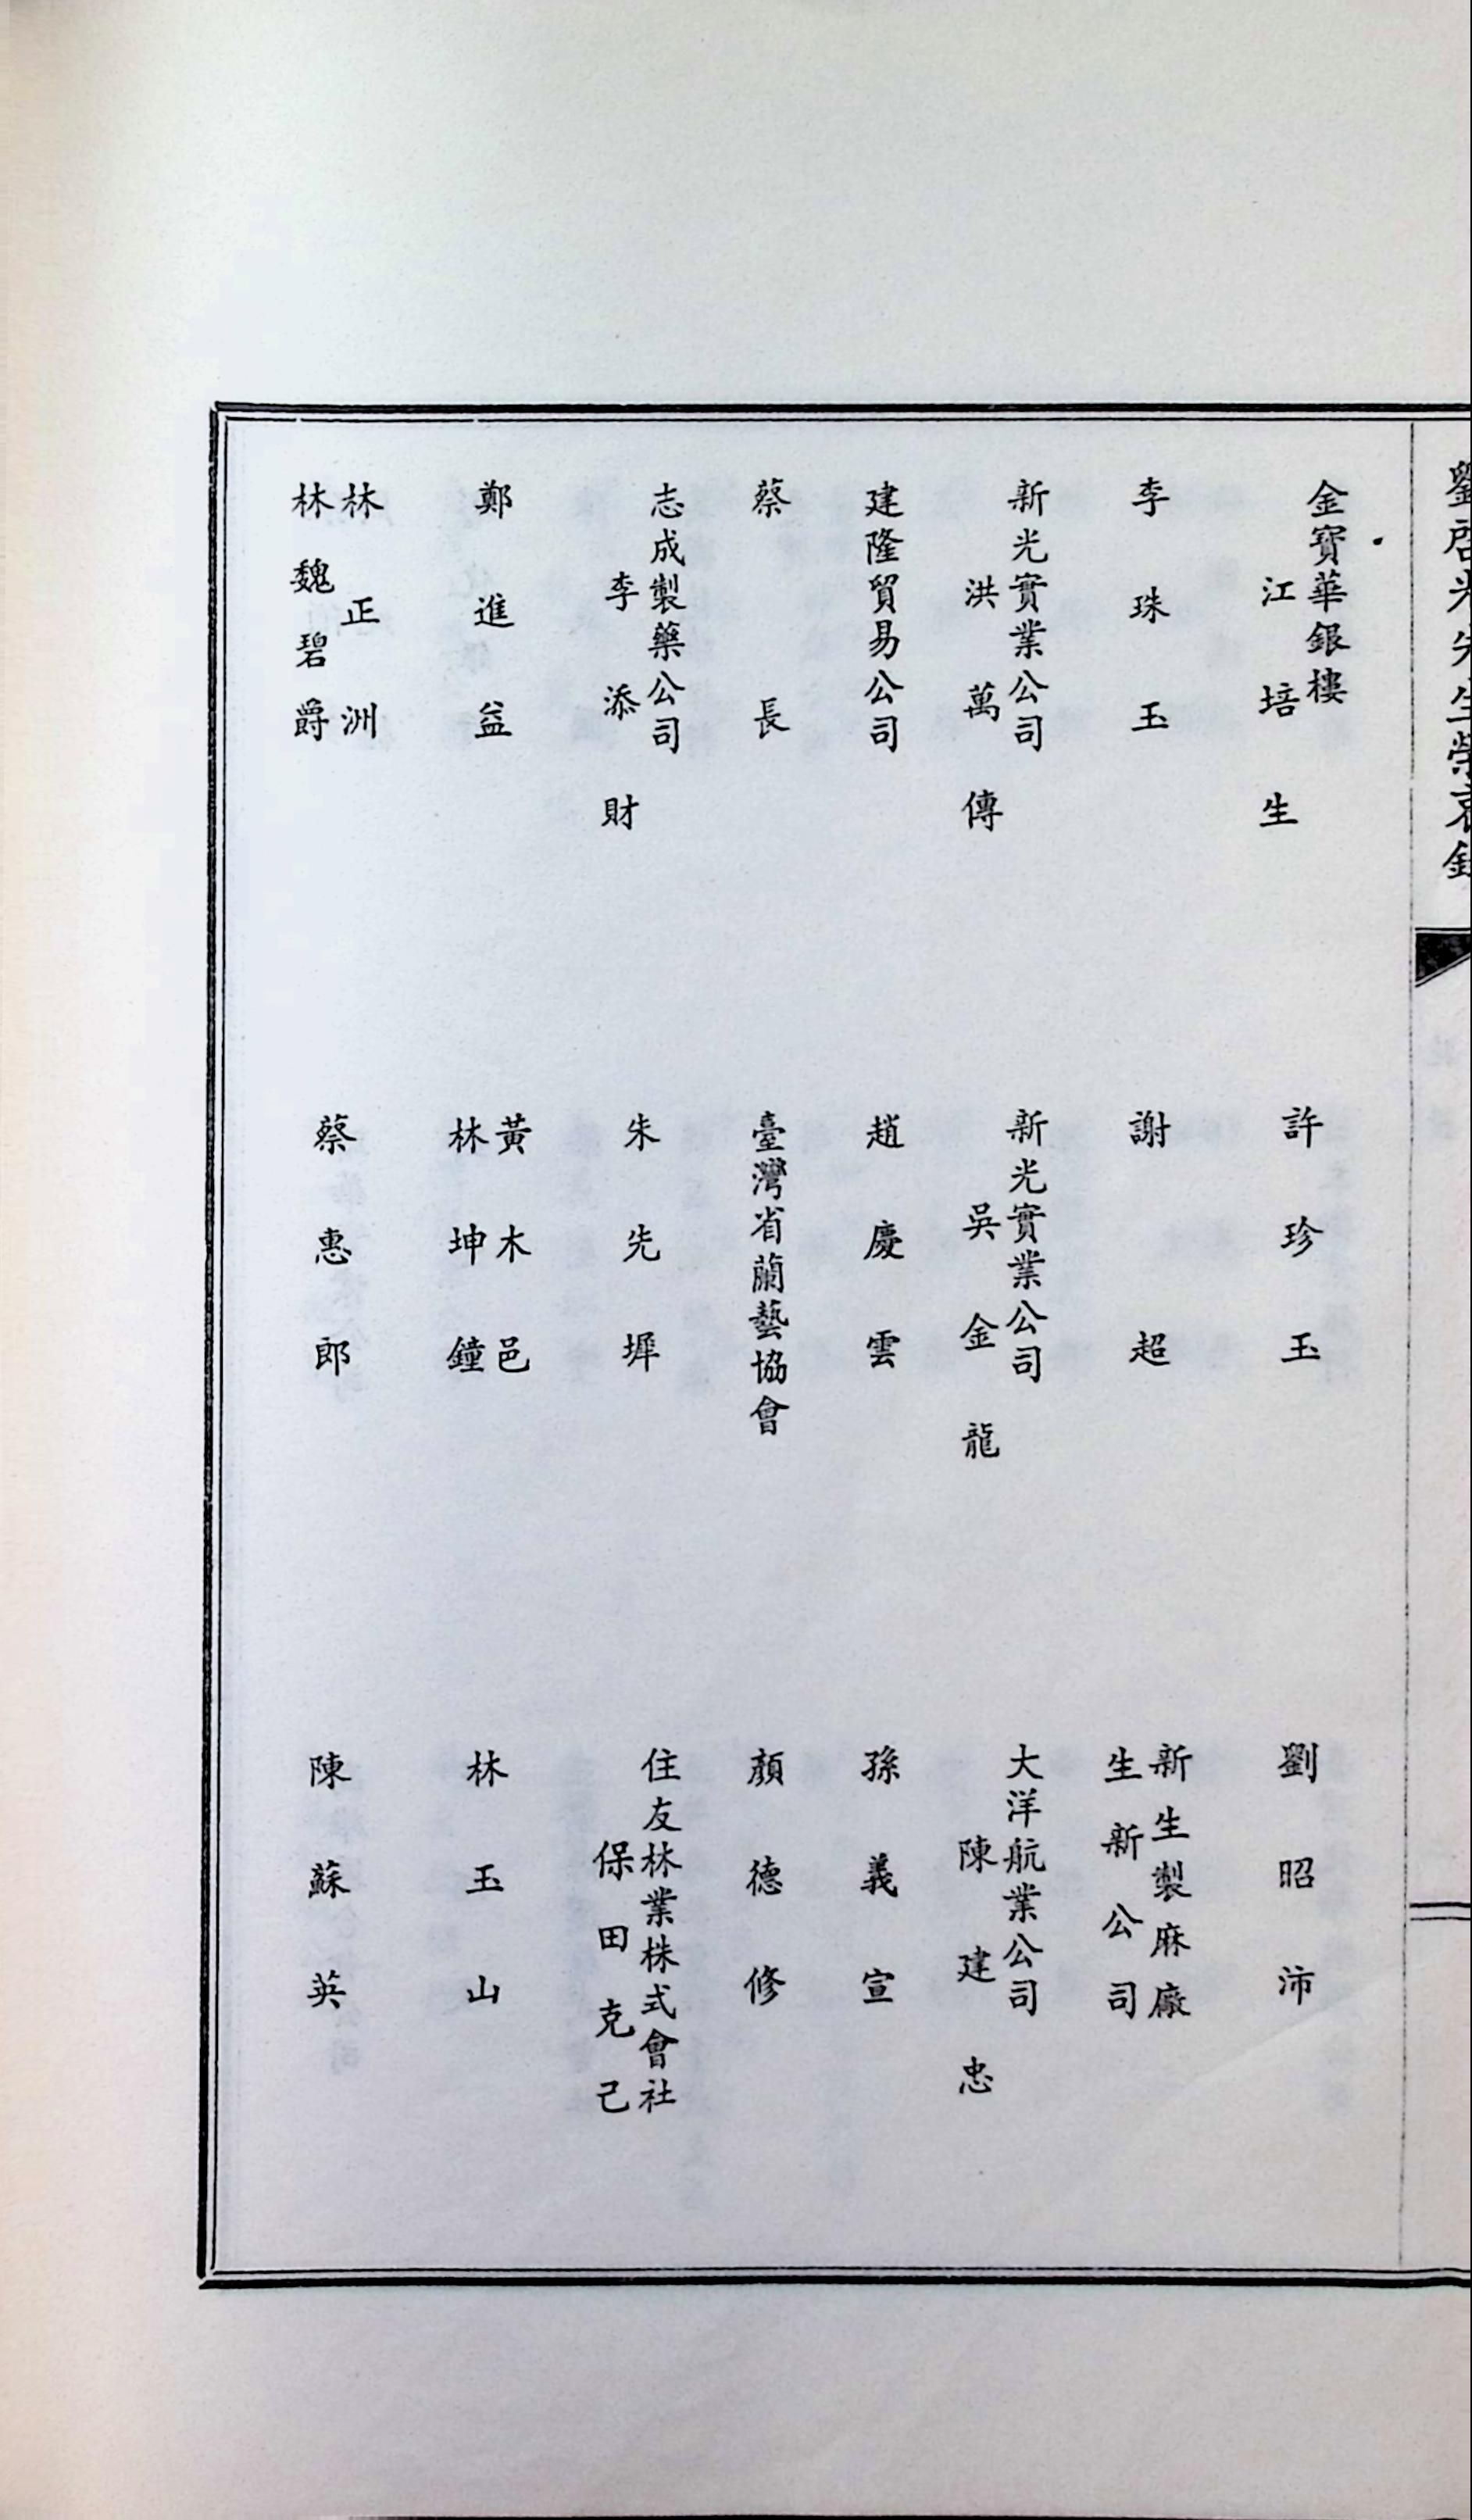 劉啓光先生榮哀錄
金寶華銀樓
江培生
李珠玉
新光實業公司
洪萬傳
建隆貿易公司
蔡長
志成製藥公司
李添財
鄭進益
林正洲
林魏碧爵
許珍玉
謝超
新光實業公司
吳金龍
趙慶雲
臺灣省蘭藝協會
朱先墀
黃木邑
林坤鐘
蔡惠郎
劉昭沛
新生製麻廠
生新公司
大洋航業公司
陳建忠
孫義宣
顏德修
住友林業株式會社
保田克己
林玉山
陳蘇英